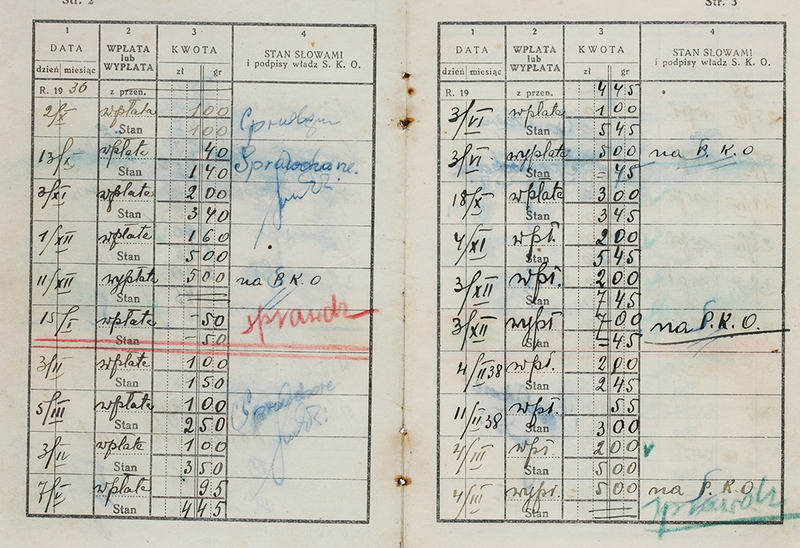 Str. 2
1 2 3 4
DATA WPŁATA lub WYPŁATA KWOTA STAN SŁOWAMI i podpisy władz S. K. O.
dzień miesiąc zł gr
R. 19 36 z przen.
2/X wpłata 1 00
Stan 1 00
13/X wpłata 40 Sprawdzone.
Stan 1 40
3/XI wpłata 2 00
Stan 3 40
1/XII wpłata 1 60
Stan 5 00
11/XII wypłata 5 00 na P. K. O
Stan =
15/I wpłata - 50 sprawdz
Stan - 50
3/II wpłata 1 00
Stan 1 50
5/III wpłata 1 00 Sprawdzone
Stan 2 50
3/II wpłata 1 00
Stan 3 50
7/V wpłata 95
Stan 4 45
Str. 3
1 2 3 4
DATA WPŁATA lub WYPŁATA KWOTA STAN SŁOWAMI i podpisy władz S. K. O.
dzień miesiąc zł gr
R. 19 z przen. 4 45
3/VI wpłata 1 00
Stan 5 45
3/VI wypłata 5 00 na P. K. O
Stan - 45
18/X wpłata 3 00
Stan 3 45
4/XI wpł. 2 00
Stan 5 45
3/XII wpł. 2 00
Stan 7 45
3/XII wypł. 7 00 na P. K. O.
Stan - 45
4/II 38 wpł. 2 00
Stan 2 45
11/II 38 wpł. 55
Stan 3 00
4/III wpł 2 00
Stan 5 00
4/III wypł. 5 00 na P. K. O
Stan = sprawdz